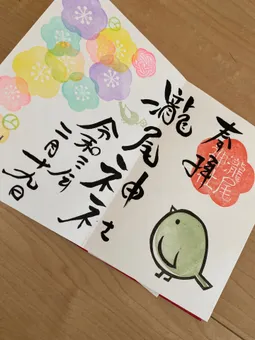 奉拝
瀧尾神社
令和三年
二月十九日
瀧尾